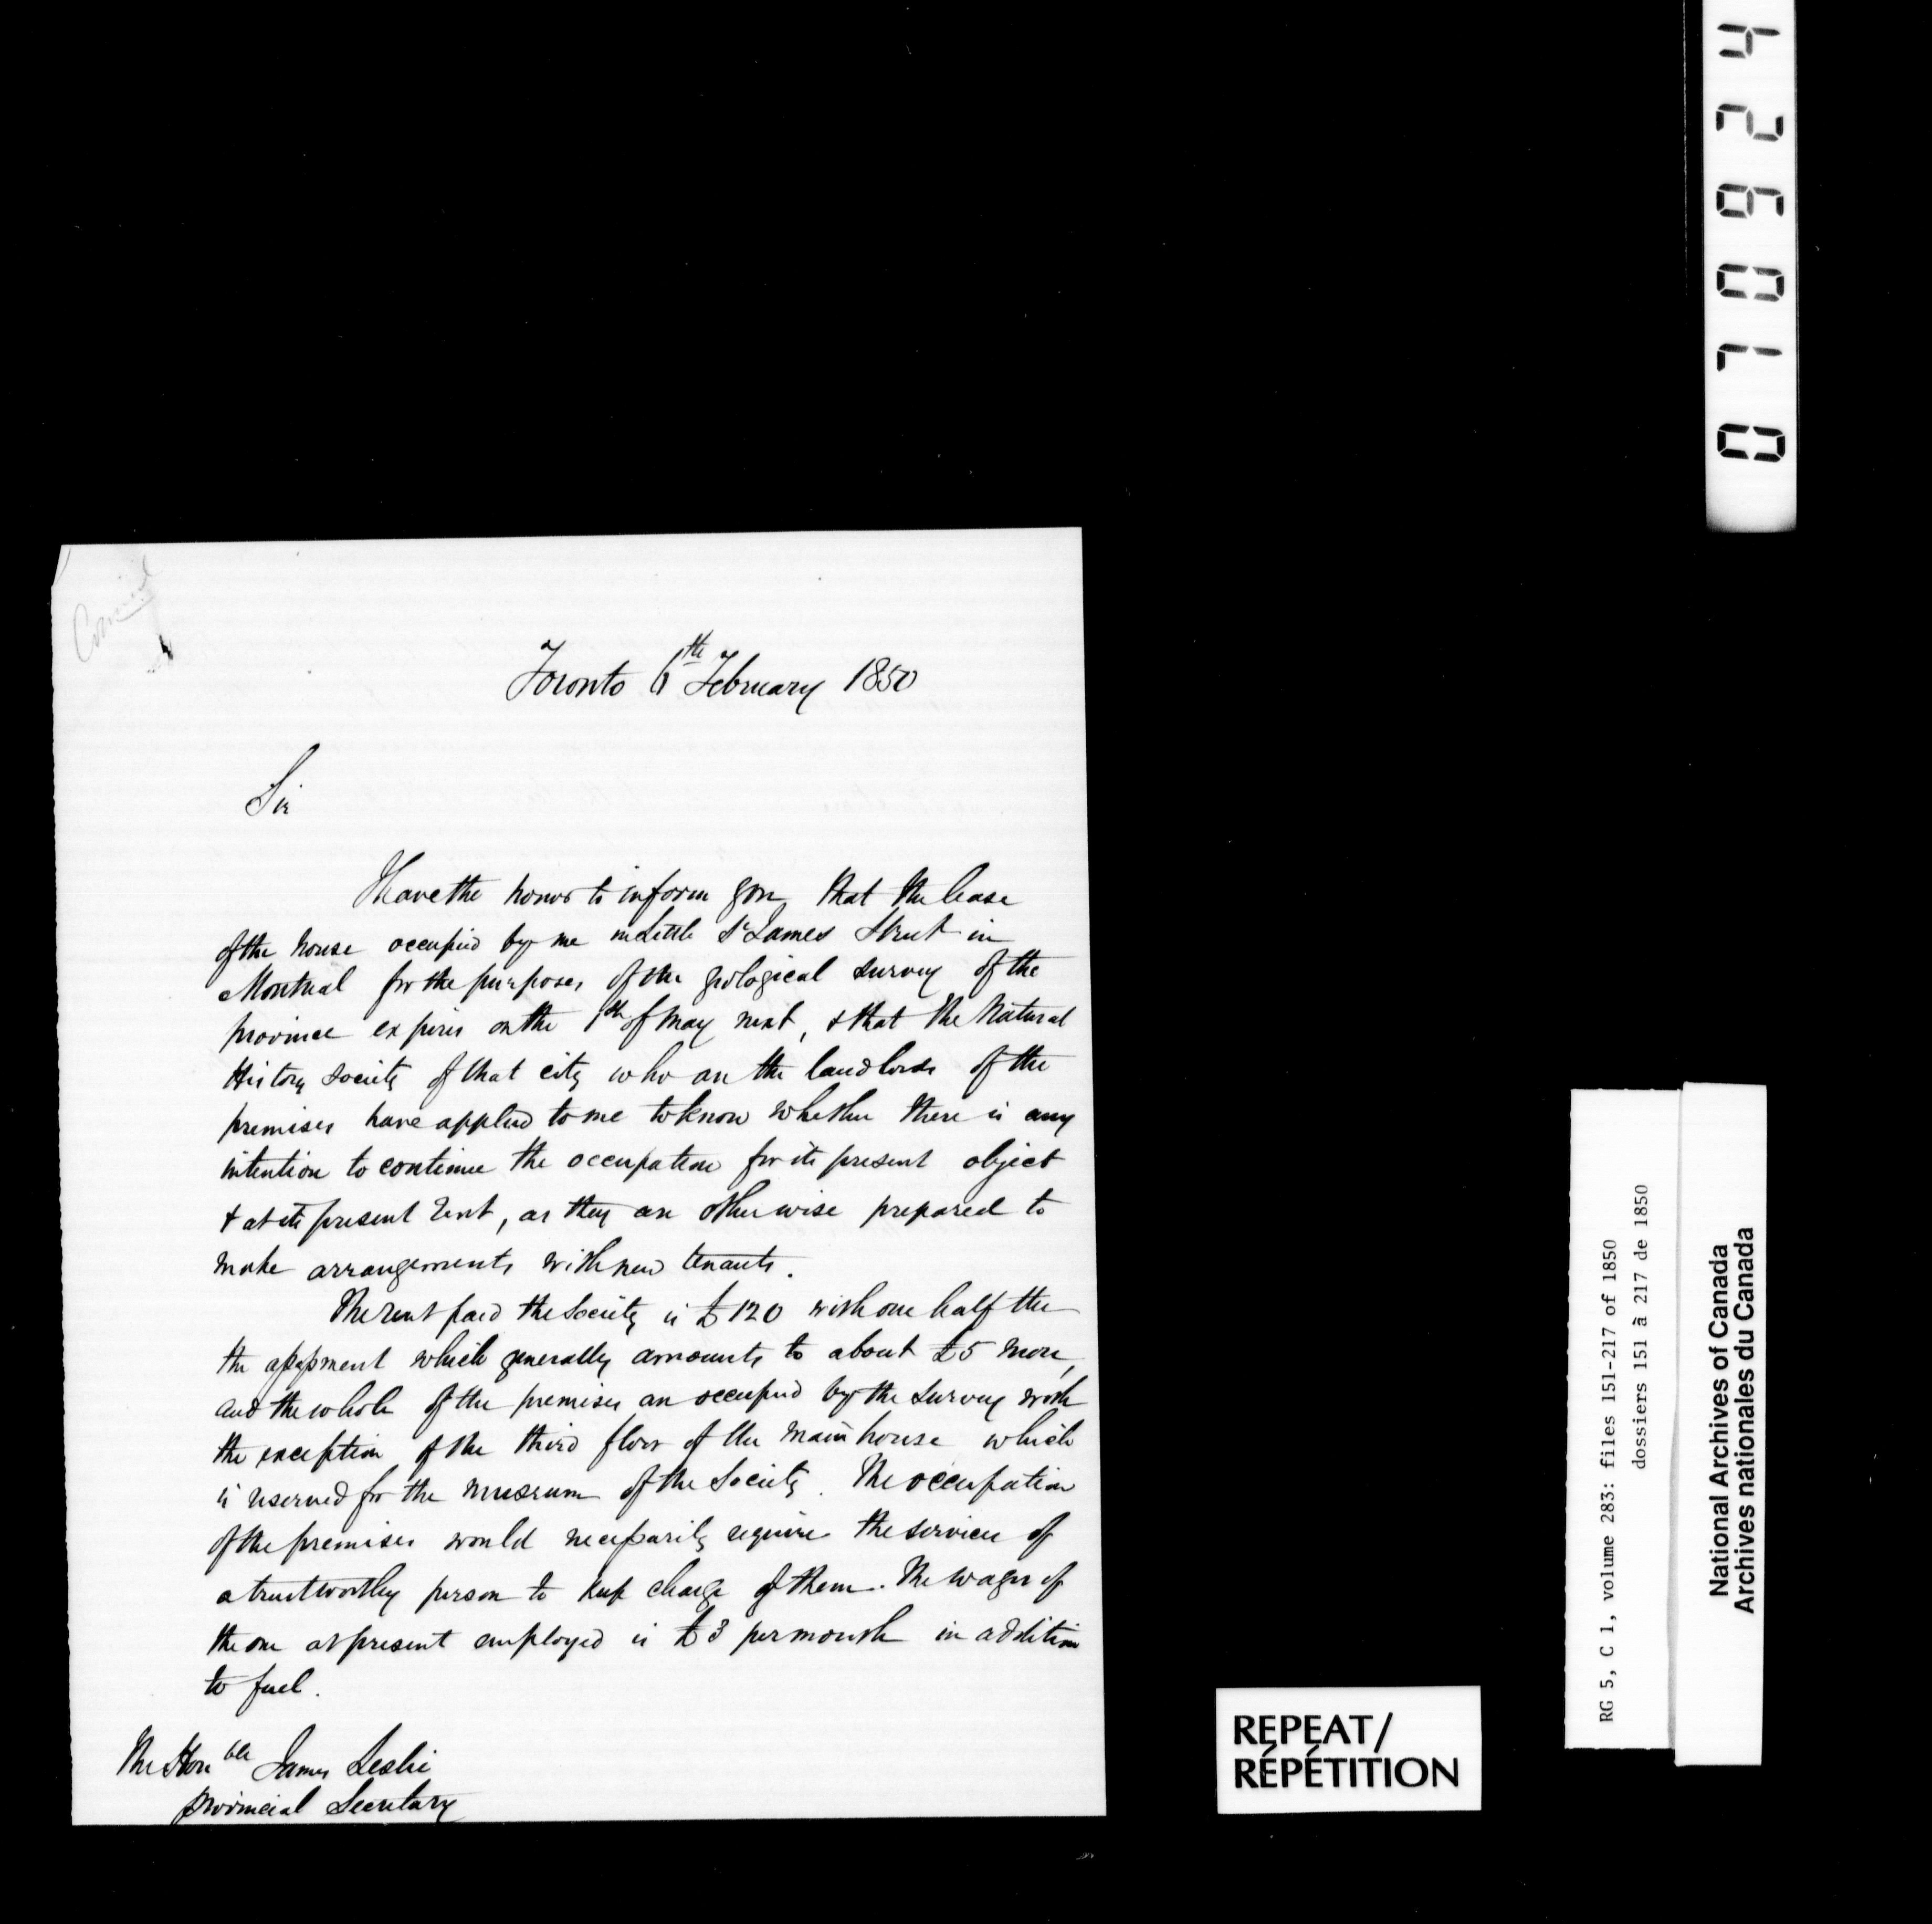 Council
Toronto 6th February 1850
Sir
I have the honor to inform you that the lease
of the house occupied by me in Little St James Street in
Montreal for the purposes of the geological survey of the
province expires on the 1st of May next, & that the Natural
History Society of that city who are the landlords of the
premises have applied to me to know whether there is any
intention to continue the occupation for its present object
& at its present rent, as they are otherwise prepared to
make arrangements with new tenants.
The rent paid the Society is £120 with one half the
the assessment which generally amounts to about £5 more,
and the whole of the premises are occupied by the survey with
the exception of the third floor of the main house which
is reserved for the museum of the Society. The occupation
of the premises would necessarily require the services of
a trustworthy person to keep charge of them. The wages of
the one at present employed is £3 per month in addition
to fuel.
The Honble James Leslie
Provincial Secretary
REPEAT/
RÉPÉTITION
RG 5, C 1, volume 283: files 151-217 of 1850
dossiers 151 à 217 de 1850
National Archives of Canada
Archives nationales du Canada
010924